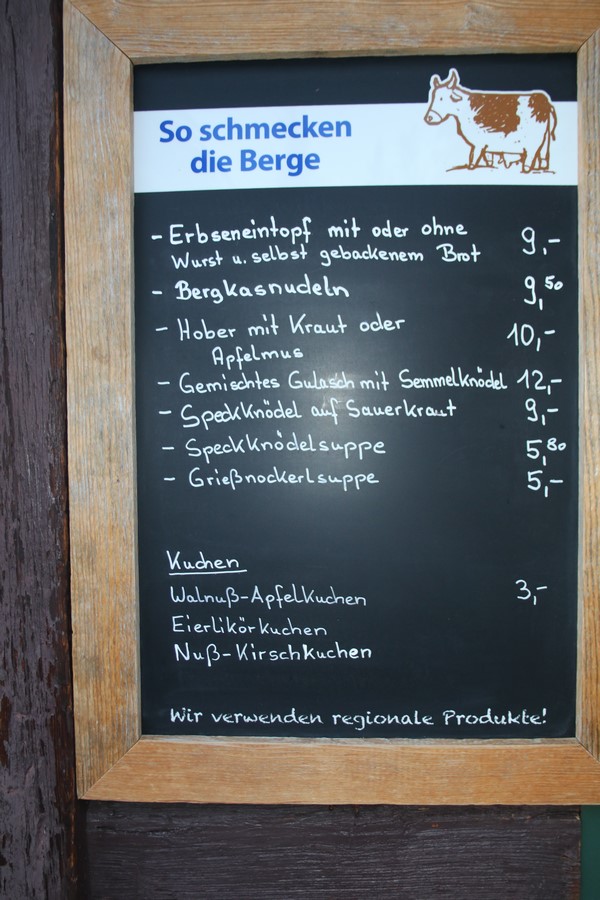 So schmecken
die Berge
- Erbseneintopf mit oder ohne 9,-
Wurst u. selbst gebackenem Brot
- Bergkasnudeln 9,50
- Hober mit Kraut oder 10,-
Apfelmus
- Gemischtes Gulasch mit Semmelknödel 12,-
- Speckknödel auf Sauerkraut 9,-
- Speckknödelsuppe 5,80
- Grießnockerlsuppe 5,-
Kuchen
Walnuß-Apfelkuchen 3,-
Eierlikörkuchen
Nuß-Kirschkuchen
Wir verwenden regionale Produkte!